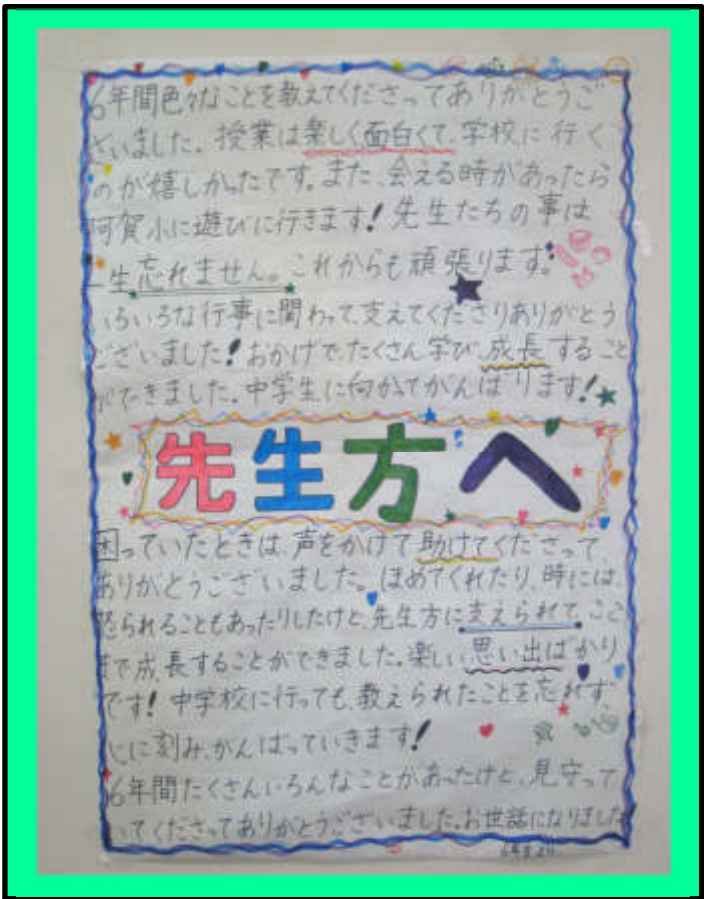 6年間色々なことを教えてくださってありがとうご
ざいました。授業は楽しく面白くて、学校に行く
のが嬉しかったです。また、会える時があったら
阿賀小に遊びに行きます!先生たちの事は
一生忘れません。これからも頑張ります。
いろいろな行事に関わって、支えてくださりありがとう
ございました!おかげで、たくさん学び、成長すること
ができました。中学生に向かってがんばります!
先生方へ
困っていたときは、声をかけて助けてくださって
ありがとうございました。ほめてくれたり、時には、
怒られることもあったりしたけど、先生方に支えられて、ここ
まで成長することができました。楽しい思い出ばかり
です!中学校に行っても、教えられたことを忘れず、
心に刻み、がんばっていきます!
6年間たくさんいろんなことがあったけど、見守って
いてくださってありがとうございました。お世話になりました